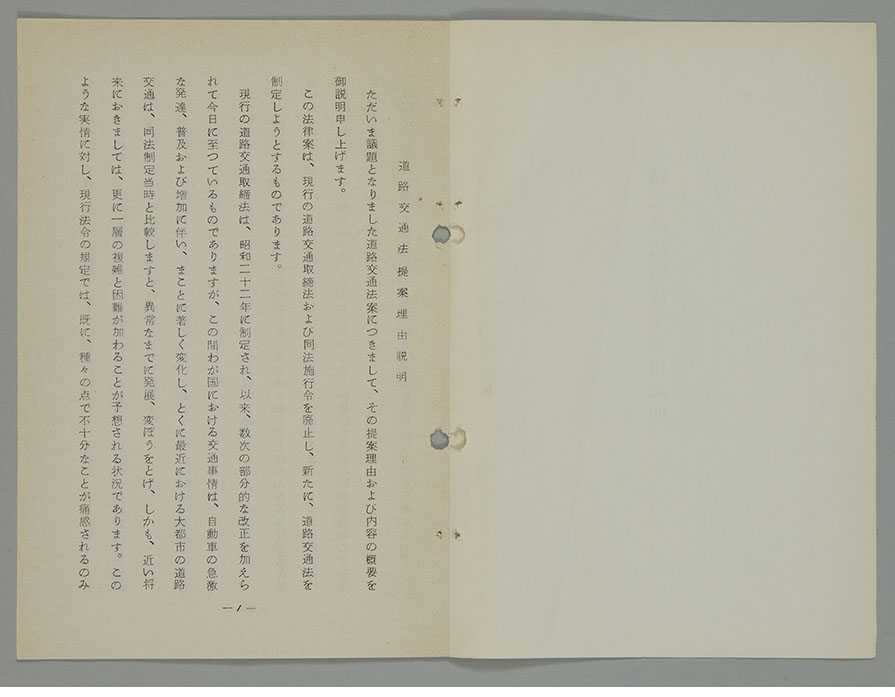 道路交通法提案理由説明
ただいま議題となりました道路交通法案につきまして、その提案理由および内容の概要を
御説明申し上げます。
この法律案は、現行の道路交通取締法および同法施行令を廃止し、新たに、道路交通法を
制定しようとするものであります。
現行の道路交通取締法は、昭和二十二年に制定され、以来、数次の部分的な改正を加えら
れて今日に至つているものでありますが、この間わが国における交通事情は、自動車の急激
な発達、普及および増加に伴い、まことに著しく変化し、とくに最近における大都市の道路
交通は、同法制定当時と比較しますと、異常なまでに発展、変ぼうをとげ、しかも、近い将
来におきましては、更に一層の複雑と困難が加わることが予想される状況であります。この
ような実情に対し、現行法令の規定では、既に、種々の点で不十分なことが痛感されるのみ
—1—